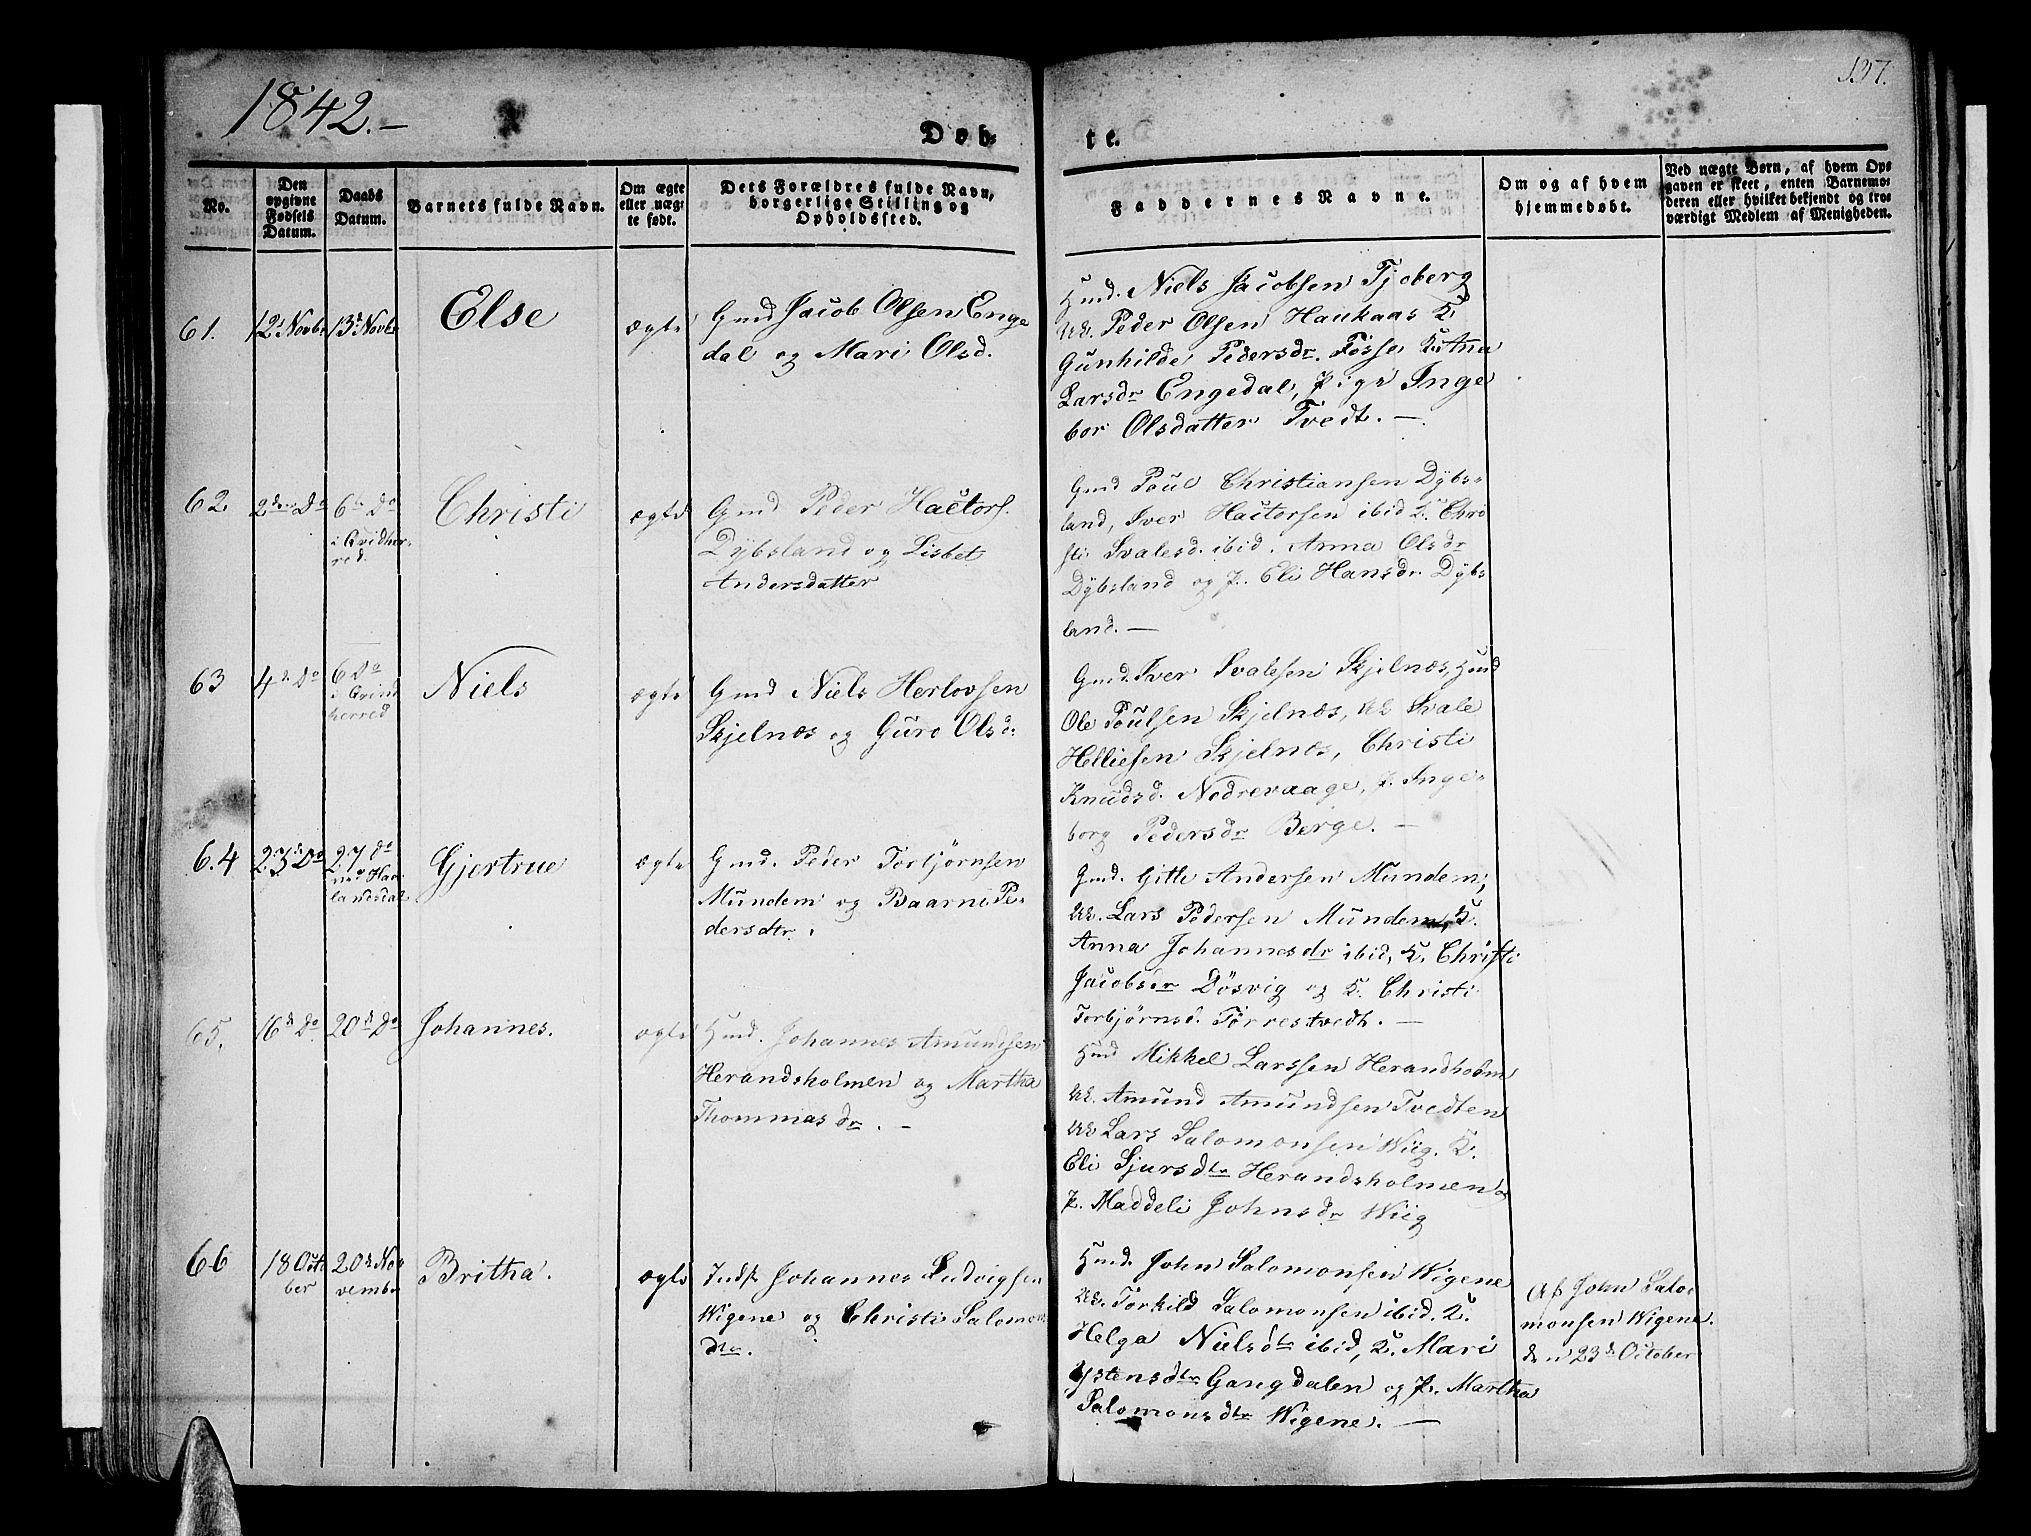 1842.—
137.
Døb-
te.
No.
Den
opgivne
Fødsels
Datum.
Daabs
Datum.
Barnets fulde Navn.
Om ægte
eller uæg
te født.
Dets Forældres fulde Navn,
borgerlige Stilling og
Opholdssted.
Faddernes Navne.
Om og af hvem
hjemmedøbt.
Ved uægte Børn, af hvem Op=
gaven er skeet, enten Barnemo=
deren eller hvilket bekjendt og tro=
værdigt Medlem af Menigheden.
61.
12te Novbr
13de Novbr
Else
ægte
Gmd Jacob Olsen Enge
dal og Mari Olsd.
Hmd. Niels Jacobsen Tjoberg
UK. Peder Olsen Haukaas K
Gunhilde Pedersdr. Fosse K. Ana
Larsdr Engedal, Pige Inge
bor Olsdatter Tvedt. —
62
2den Do
6te Do
i Qvidher-
red.
Christi
ægte
Gmd Peder Hactors.
Dybsland og Lisbet
Andersdatter
Gmd Poul Christiansen Dybs-
land, Iver Hactorsen ibid K. Chri
sti Svalesd. ibid. Anna Olsdr
Dybsland og P. Eli Hansdr. Dybs
land. —
63
4de Do
6 Do
i Qvind
herred
Niels
ægte
Gmd Niels Herlovsen
Skjelnæs og Guro Olsd:
Gmd. Iver Svalesen Skjelnæs, Hmd
Ole Poulsen Skjelnæs, UK Svale
Helliesen Skjelnæs, Christi
Knudsd. Nodrevaage, P. Inge-
borg Pedersdr Berge. —
64
23de Do
27 Do
Gjertrue
ægte
Gmd. Peder Torbjørnsen
Mundem og Baarni Pe-
dersdtr.
Gmd. Gitle Andersen Mundem,
UK. Lars Pedersen Mundem, K.
Anna Johannesdr ibid, K. Christi
Jacobsdr Døsvig og K. Christi
Torbjørnsd. Torrestvedt. —
65.
16de Do
20de Do
Johannes.
ægte
Hmd. Johannes Amundsen
Herandsholmen og Martha
Thommasdr. —
Hmd Mikkel Larssen Herandholm
UK. Amund Amundsen Tvedten
UK Lars Salomonsen Wiig. K.
Eli Sjursdtr Herandsholmen
P. Maddeli Johnsdr Wiig
66
18 Octo
ber
20de No
vember
Britha.
ægte
Indst Johannes Ludvigsen
Wigene og Christi Salomons
dtr.
Hmd. John Salomonsen Wigene
UK. Torkild Salomonsen ibid. K.
Helga Nielsdtr ibid, K. Mari
Ystensdtr Gangdalen og P. Martha
Salomonsdtr Wigene. —
Af John Salo-
monsen Wigene.
den 23de October